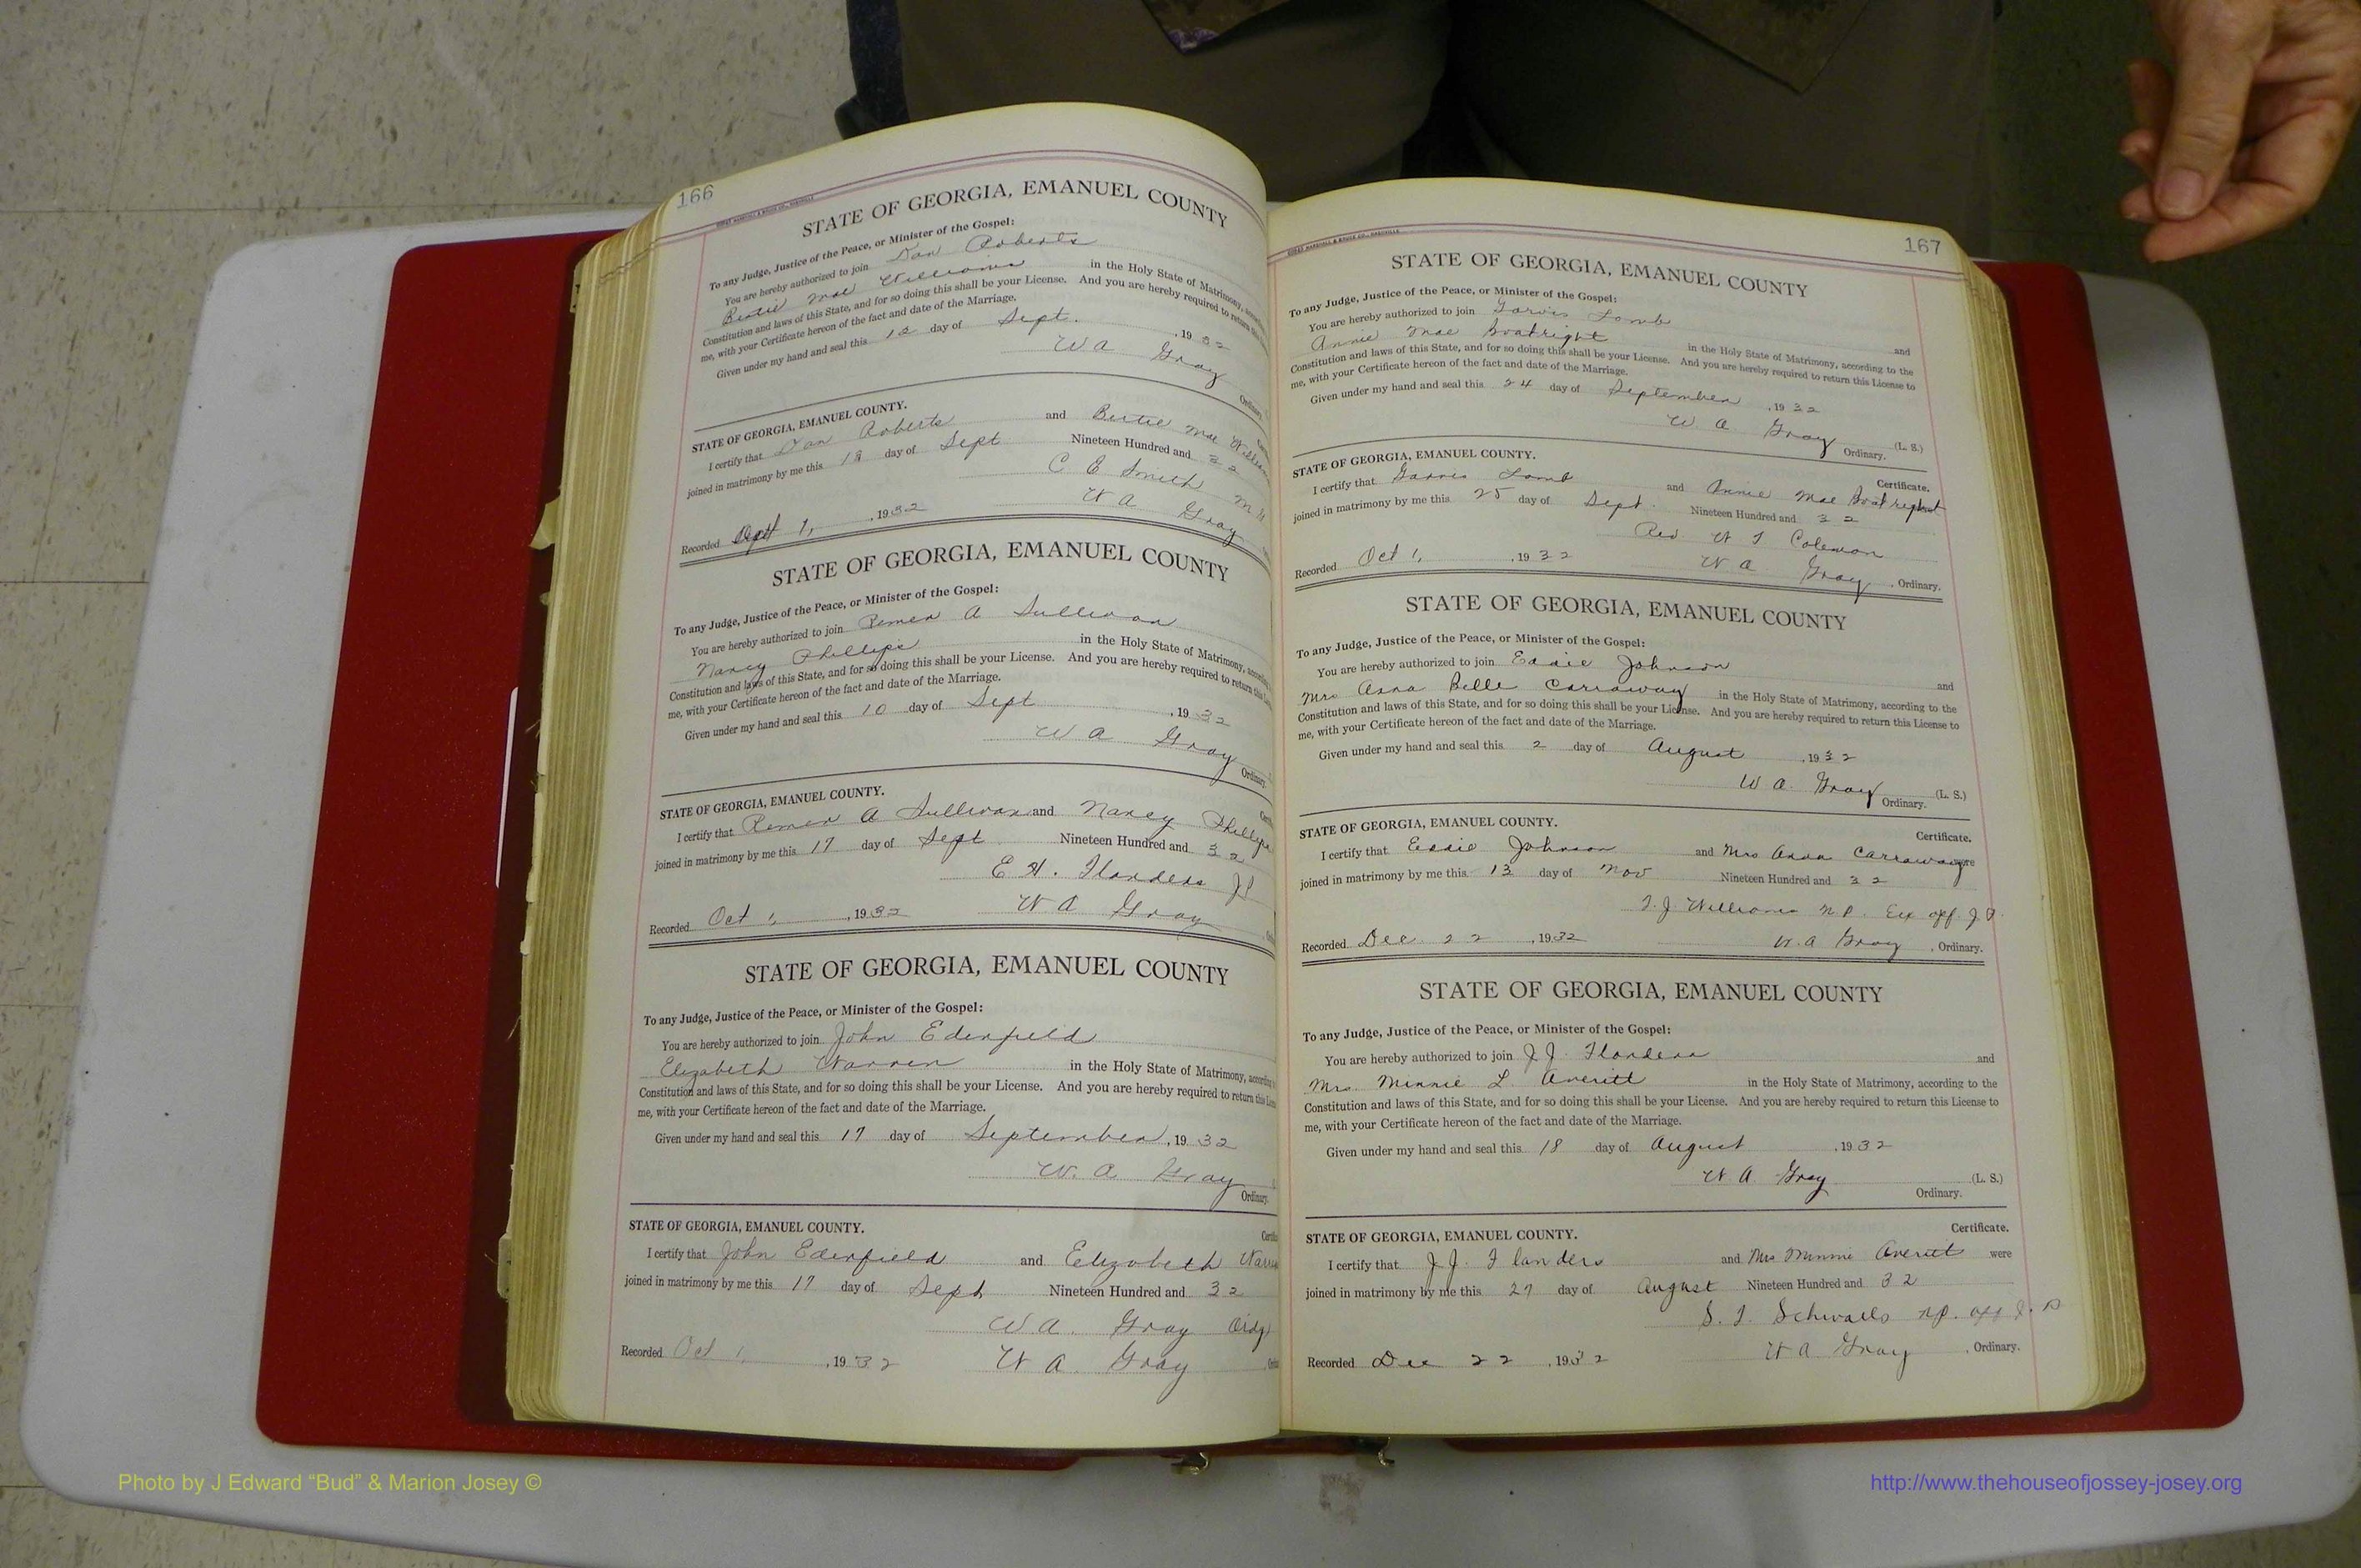 166
STATE OF GEORGIA, EMANUEL COUNTY
To any Judge, Justice of the Peace, or Minister of the Gospel:
You are hereby authorized to join Dan Roberts
Bertie Mae Williams in the Holy State of Matrimony,
Constitution and laws of this State, and for so doing this shall be your License. And you are hereby required to return
me, with your Certificate hereon of the fact and date of the Marriage.
Given under my hand and seal this 12 day of Sept. , 1932
W A Gray
Ordinary.
STATE OF GEORGIA, EMANUEL COUNTY.
I certify that Dan Roberts and Bertie Mae
joined in matrimony by me this 18 day of Sept Nineteen Hundred and 32
C E Smith
Recorded 1, , 1932 W A Gray
STATE OF GEORGIA, EMANUEL COUNTY
To any Judge, Justice of the Peace, or Minister of the Gospel:
You are hereby authorized to join Remer A Sullivan
Nancy Phillips in the Holy State of Matrimony,
Constitution and laws of this State, and for so doing this shall be your License. And you are hereby required to return
me, with your Certificate hereon of the fact and date of the Marriage.
Given under my hand and seal this 10 day of Sept , 1932
W A Gray
Ordinary.
STATE OF GEORGIA, EMANUEL COUNTY.
I certify that Remer A Sullivan and Nancy Phillips
joined in matrimony by me this 17 day of Sept Nineteen Hundred and 32
E H. Flanders
Recorded Oct 1, , 1932 W A Gray
STATE OF GEORGIA, EMANUEL COUNTY
To any Judge, Justice of the Peace, or Minister of the Gospel:
You are hereby authorized to join John Edenfield
Elizabeth Warren in the Holy State of Matrimony,
Constitution and laws of this State, and for so doing this shall be your License. And you are hereby required to return this
me, with your Certificate hereon of the fact and date of the Marriage.
Given under my hand and seal this 17 day of September , 1932
W. A Gray
Ordinary.
STATE OF GEORGIA, EMANUEL COUNTY.
I certify that John Edenfield and Elizabeth
joined in matrimony by me this 17 day of Sept Nineteen Hundred and 32
W A. Gray
Recorded Oct 1, , 1932 W A Gray
167
STATE OF GEORGIA, EMANUEL COUNTY
To any Judge, Justice of the Peace, or Minister of the Gospel:
You are hereby authorized to join Garvis Lamb
and
Annie Mae Boatright in the Holy State of Matrimony, according to the
Constitution and laws of this State, and for so doing this shall be your License. And you are hereby required to return this License to
me, with your Certificate hereon of the fact and date of the Marriage.
Given under my hand and seal this 24 day of September , 1932
W A Gray (L. S.)
Ordinary.
STATE OF GEORGIA, EMANUEL COUNTY.
Certificate.
I certify that Garvis Lamb and Annie Mae Boatright
joined in matrimony by me this 25 day of Sept. Nineteen Hundred and 32
Rev W Coleman
Recorded Oct 1, , 1932 W A Gray , Ordinary.
STATE OF GEORGIA, EMANUEL COUNTY
To any Judge, Justice of the Peace, or Minister of the Gospel:
You are hereby authorized to join Eddie Johnson
and
Mrs Anna Belle Carraway in the Holy State of Matrimony, according to the
Constitution and laws of this State, and for so doing this shall be your License. And you are hereby required to return this License to
me, with your Certificate hereon of the fact and date of the Marriage.
Given under my hand and seal this 2 day of August , 1932
W A. Gray (L. S.)
Ordinary.
STATE OF GEORGIA, EMANUEL COUNTY.
Certificate.
I certify that Eddie Johnson and Mrs Anna Carraway
joined in matrimony by me this 13 day of Nov Nineteen Hundred and 32
Williams N.P. Ex off J.P.
Recorded Dec. 22 , 1932 W.A Gray , Ordinary.
STATE OF GEORGIA, EMANUEL COUNTY
To any Judge, Justice of the Peace, or Minister of the Gospel:
You are hereby authorized to join J J. Flanders and
Mrs. Minnie L. Averitt in the Holy State of Matrimony, according to the
Constitution and laws of this State, and for so doing this shall be your License. And you are hereby required to return this License to
me, with your Certificate hereon of the fact and date of the Marriage.
Given under my hand and seal this 18 day of August , 1932
W A Gray (L. S.)
Ordinary.
Certificate.
STATE OF GEORGIA, EMANUEL COUNTY.
I certify that J J. Flanders and Mrs Minnie Averitt were
joined in matrimony by me this 27 day of August Nineteen Hundred and 32
NP. off J. P
Recorded Dec 22 , 1932 W A Gray , Ordinary.
Photo by J Edward “Bud” & Marion Josey ©
http://www.thehouseofjossey-josey.org